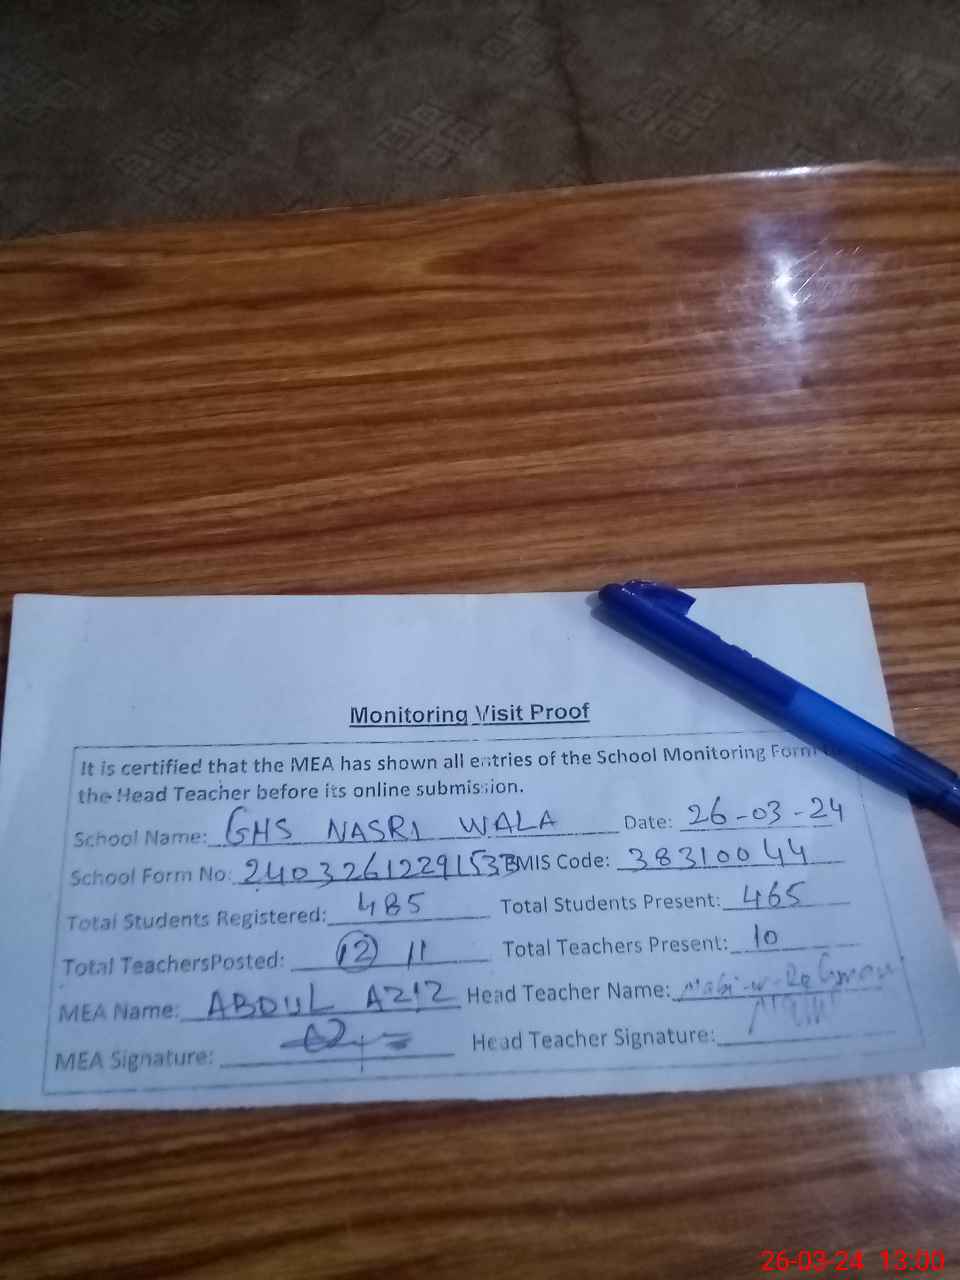 Monitoring Visit Proof
It is certified that the MEA has shown all entries of the School Monitoring Form to
the Head Teacher before its online submission.
School Name: GHS NASRI WALA Date: 26-03-24
School Form No: 24032612291533 EMIS Code: 38310044
Total Students Registered: 485 Total Students Present: 465
Total TeachersPosted: 12 11 Total Teachers Present: 10
MEA Name: ABDUL AZIZ Head Teacher Name:
MEA Signature: Head Teacher Signature:
26-03-24 13:00